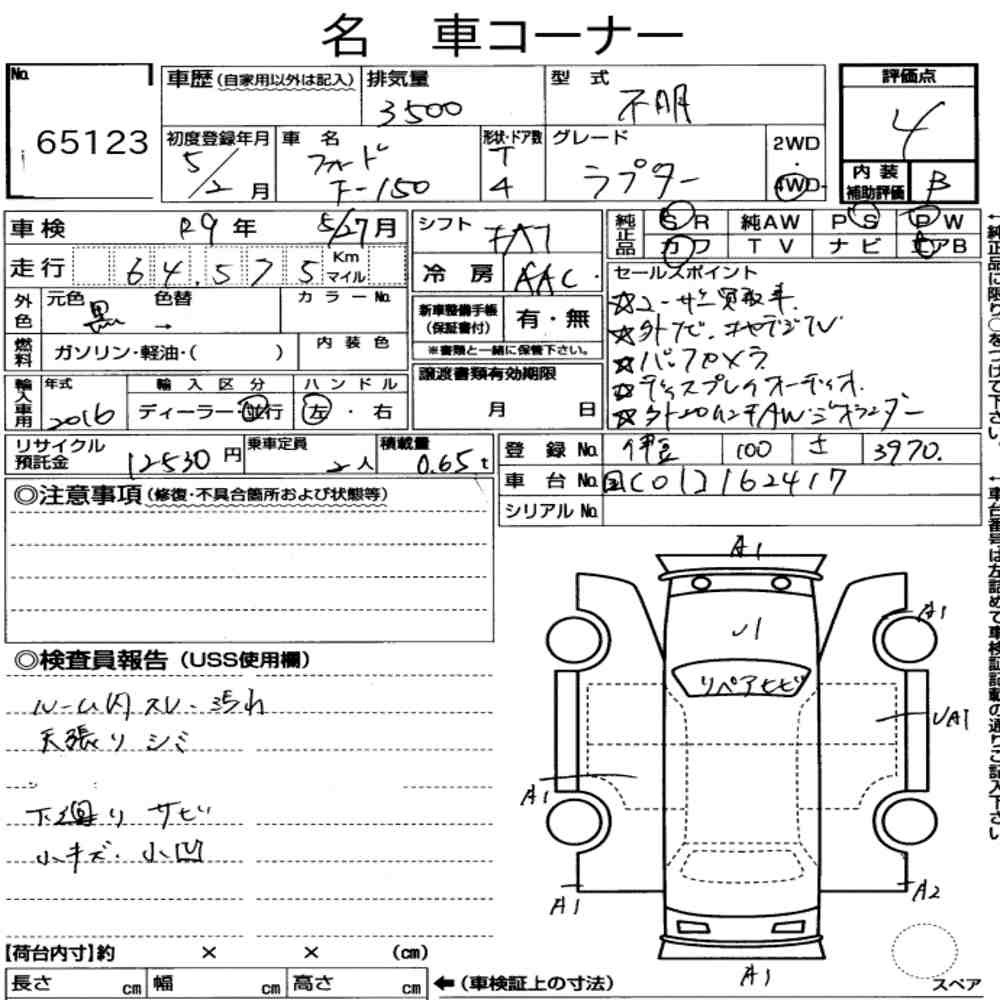 名 車コーナー
No.
65123
車歴(自家用以外は記入)
排気量
3500
型 式
不明
評価点
4
初度登録年月
5/2月
車 名
フォード
F-150
形状・ドア数
T
4
グレード
ラプター
2WD
・
4WD
内 装
補助評価
B
車検
R9年 5/27月
シフト
FAT
純正品
SR
純AW
PS
PW
カワ
TV
ナビ
エアB
走行
64,575
Km
マイル
冷 房
AAC
セールスポイント
☆ユーザー買取車
☆外ナビ、地デジTV
☆バックカメラ
☆ディスプレイオーディオ
☆外20インチAW
外色
元色
黒
色替
→
カラーNo.
新車整備手帳
(保証書付)
有・無
※書類と一緒に保管下さい。
燃料
ガソリン・軽油・( )
内装色
譲渡書類有効期限
月 日
輸入車用
年式
2016
輸入区分
ディーラー・並行
ハンドル
左・右
リサイクル
預託金
12530円
乗車定員
2人
積載量
0.65t
登 録 No.
伊豆
100
さ
3970
車 台 No.
国[01]162417
シリアル No.
◎注意事項(修復・不具合箇所および状態等)
◎検査員報告(USS使用欄)
ルーム内スレ・汚れ
天張りシミ
下廻りサビ
小キズ・小凹
A1
A1
U1
リペアヒビ
UA1
A1
A1
A2
A1
【荷台内寸】約 × × (cm)
長さ cm
幅 cm
高さ cm
←(車検証上の寸法)
スペア
↑純正品に限り○をつけて下さい。
↑車台番号は左詰めで車検証記載の通りご記入下さい